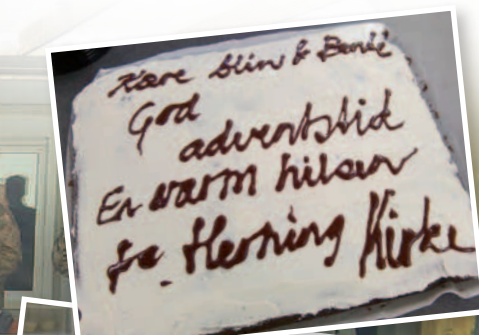 Kære
God
adventstid
En varm hilsen
fra Herning Kirke